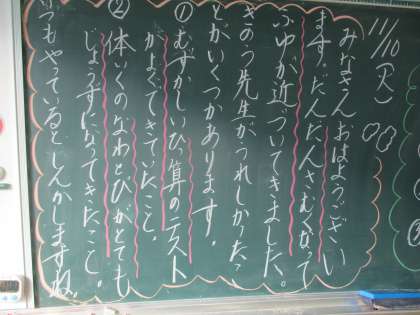 11/10(火)
みなさん おはようござい
ます。だんだんさむくなって
ふゆが近づいてきました。
きのう先生がうれしかったこ
とがいくつかあります。
①むずかしいひき算のテスト
がよくできていたこと。
②体いくのなわとびがとても
じょうずになってきたこと。
いつもやっているとしんかしますね。